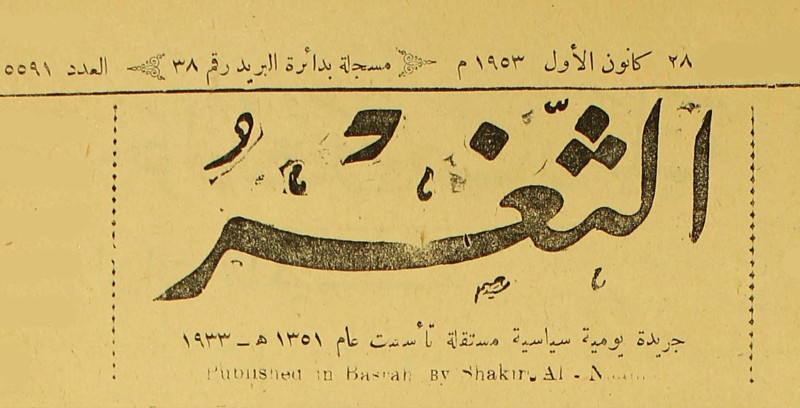 ٢٨ كانون الأول ١٩٥٣ م مسجلة بدائرة البريد رقم ٣٨ العدد ٥٥٩١
الثَّغْرُ
جريدة يومية سياسية مستقلة تأسست عام ١٣٥١ هـ ــ ١٩٣٣
Published in Basrah By Shakir Al -